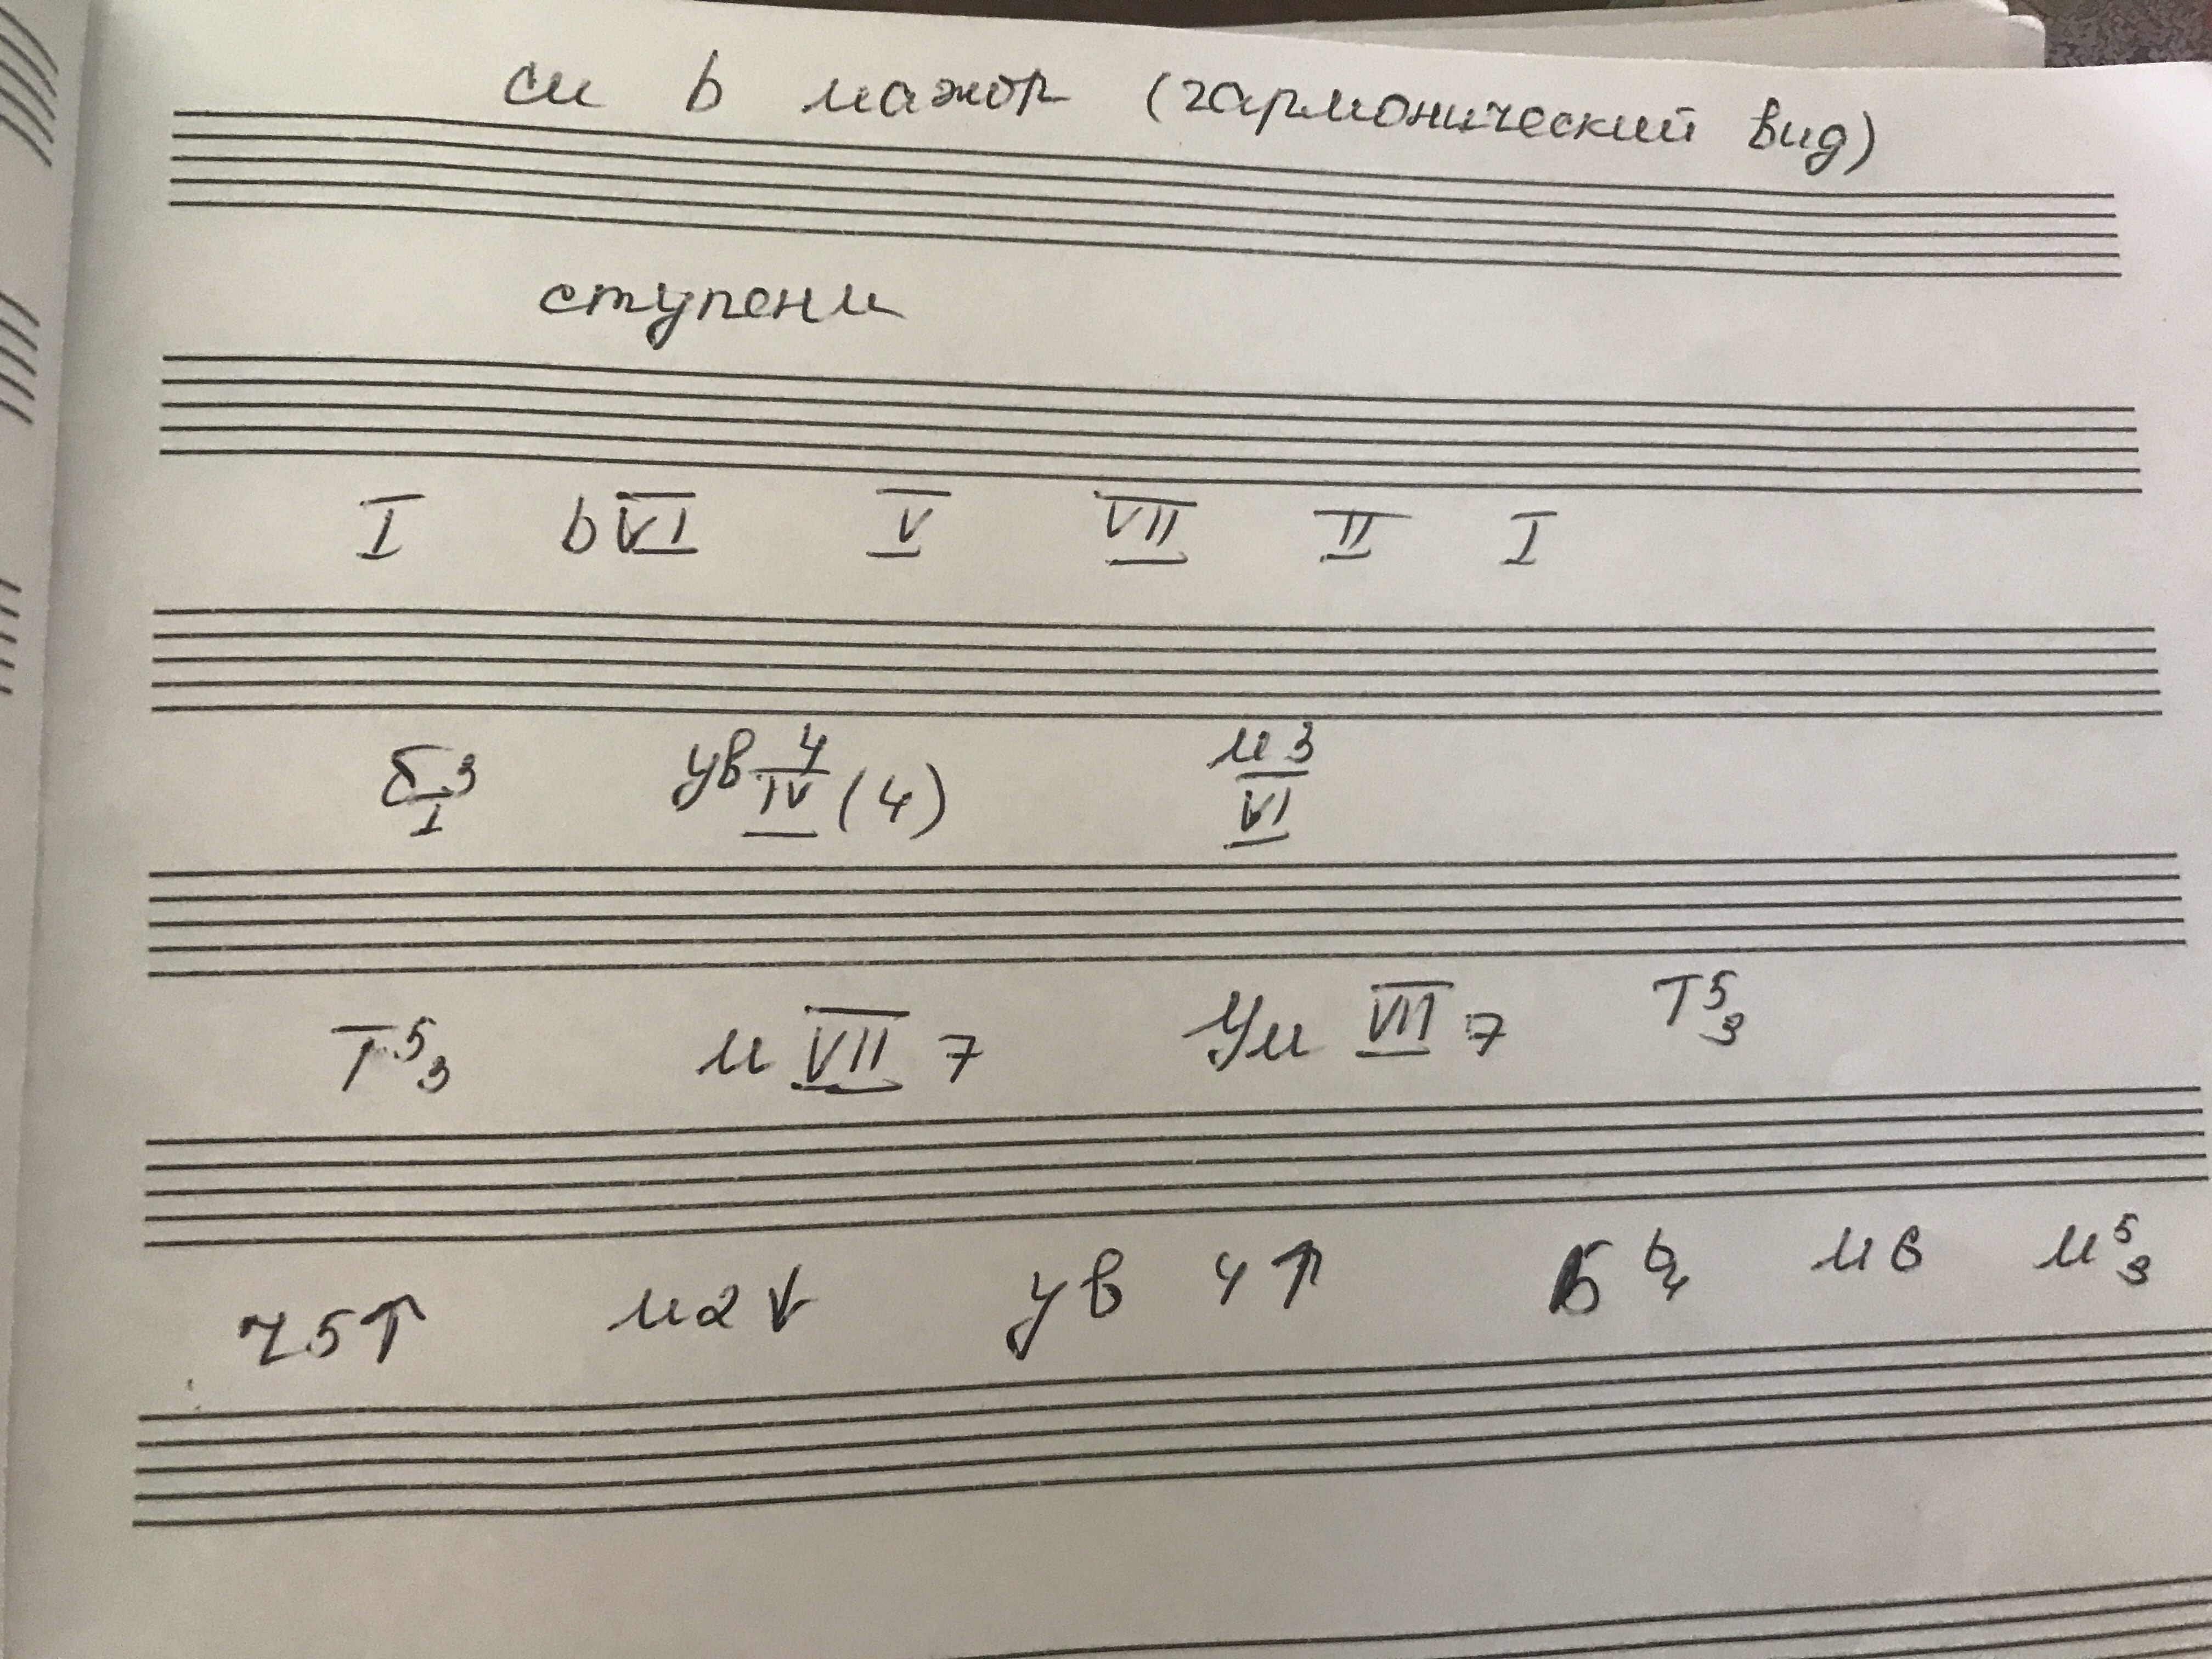 си b мажор (гармонический вид)
ступени
I bVI V VII II I
б3/I ув4/IV (4) м3/VI
T5/3 м VII 7 Ум VII 7 T5/3
ч5↑ м2↓ ув 4↑ Б6/4 м6 м5/3